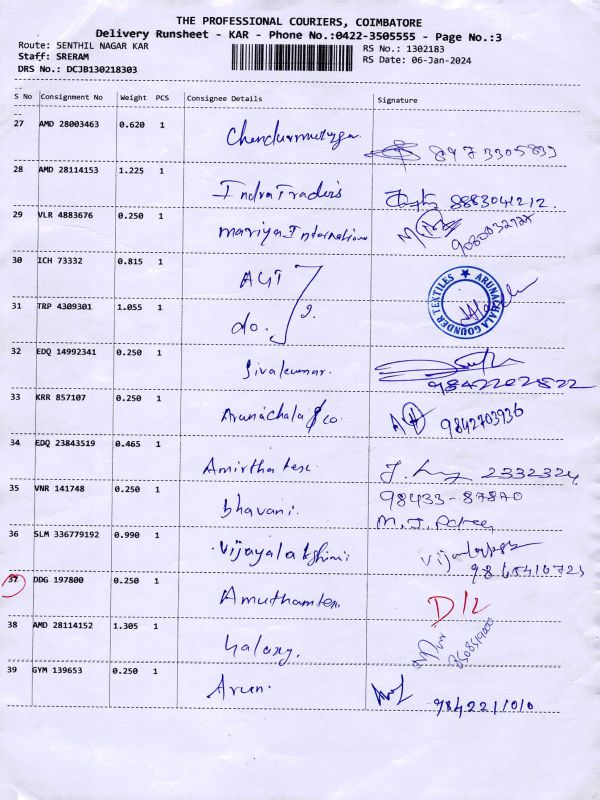 THE PROFESSIONAL COURIERS, COIMBATORE
Delivery Runsheet - KAR - Phone No.:0422-3505555 - Page No.:3
Route: SENTHIL NAGAR KAR RS No.: 1302183
Staff: SRERAM RS Date: 06-Jan-2024
DRS No.: DCJB130218303
S No Consignment No Weight PCS Consignee Details Signature
27 AMD 28003463 0.620 1
28 AMD 28114153 1.225 1 Indra Traders 8883041212.
29 VLR 4883676 0.250 1 Mariya International
30 ICH 73332 0.815 1 AGT
ARUNACHALA GOUNDER TEXTILES
31 TRP 4309301 1.055 1 do.
32 EDQ 14992341 0.250 1 Sivakumar. 9842202822
33 KRR 857107 0.250 1 Arunachala & co. 9842703936
34 EDQ 23843519 0.465 1 Amirtha tex. 2332324
35 VNR 141748 0.250 1 Bhavani. 98433-87870
36 SLM 336779192 0.990 1 Vijayalakshmi
37 DDG 197800 0.250 1 Amutham tex. D/L
38 AMD 28114152 1.305 1 Galaxy.
39 GYM 139653 0.250 1 Arun. 9842211010